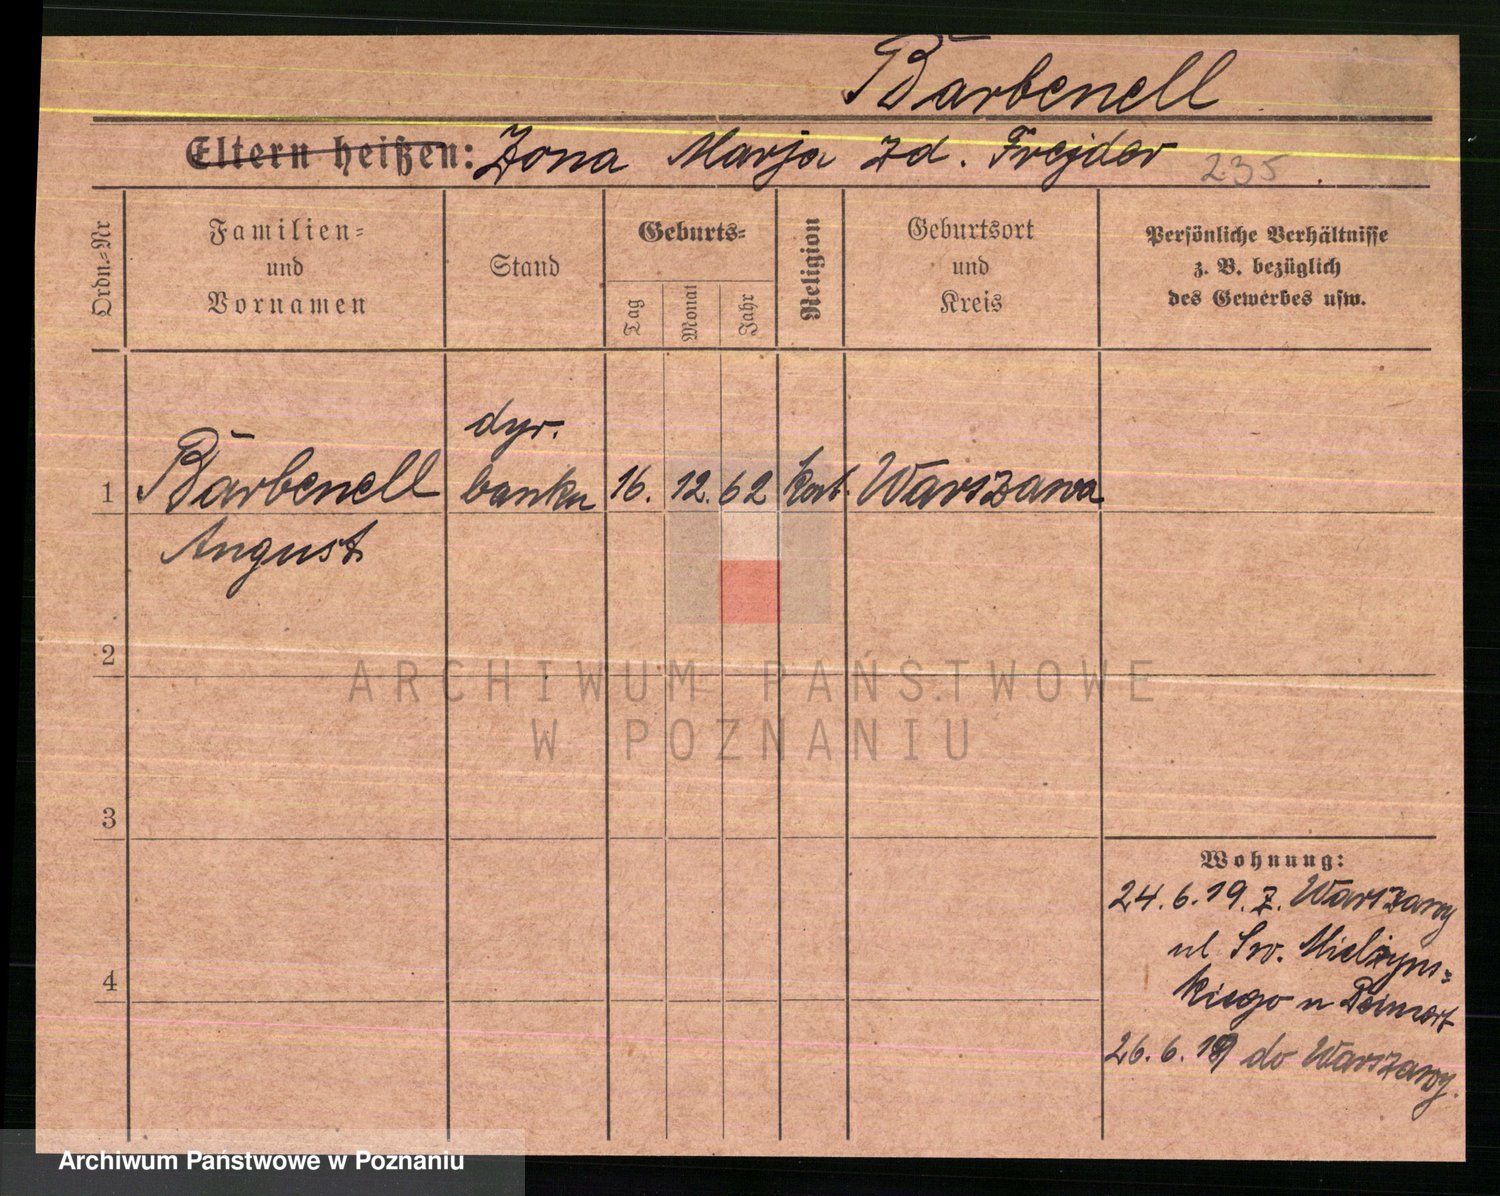 Barbenell
Eltern heißen: Żona Marja zd. Frejder 235
Ordn.-Nr
Familien-
und
Vornamen
Stand
Geburts-
Tag
Monat
Jahr
Religion
Geburtsort
und
Kreis
Persönliche Verhältnisse
z. B. bezüglich
des Gewerbes usw.
dyr.
1 Barbenell banku 16. 12. 62 kat. Warszawa
August
2
ARCHIWUM PAŃSTWOWE
W POZNANIU
3
Wohnung:
24.6.19. z. Warszawy
ul. Sew. Mielżyńs-
4
kiego u
26.6.19 do Warszawy.
Archiwum Państwowe w Poznaniu